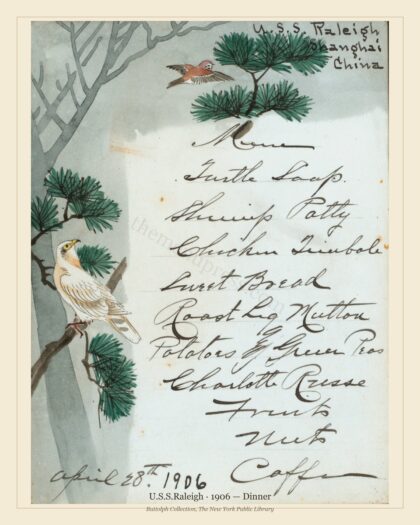 U.S.S. Raleigh
Shanghai
China
Menu
Turtle Soup.
Shrimp Patty
Chicken Timbale
Sweet Bread
Roast Leg Mutton
Potatoes & Green Peas
Charlotte Russe
Fruits
Nuts
Coffee
April 28th 1906
U.S.S.Raleigh - 1906 — Dinner
Buttolph Collection, The New York Public Library